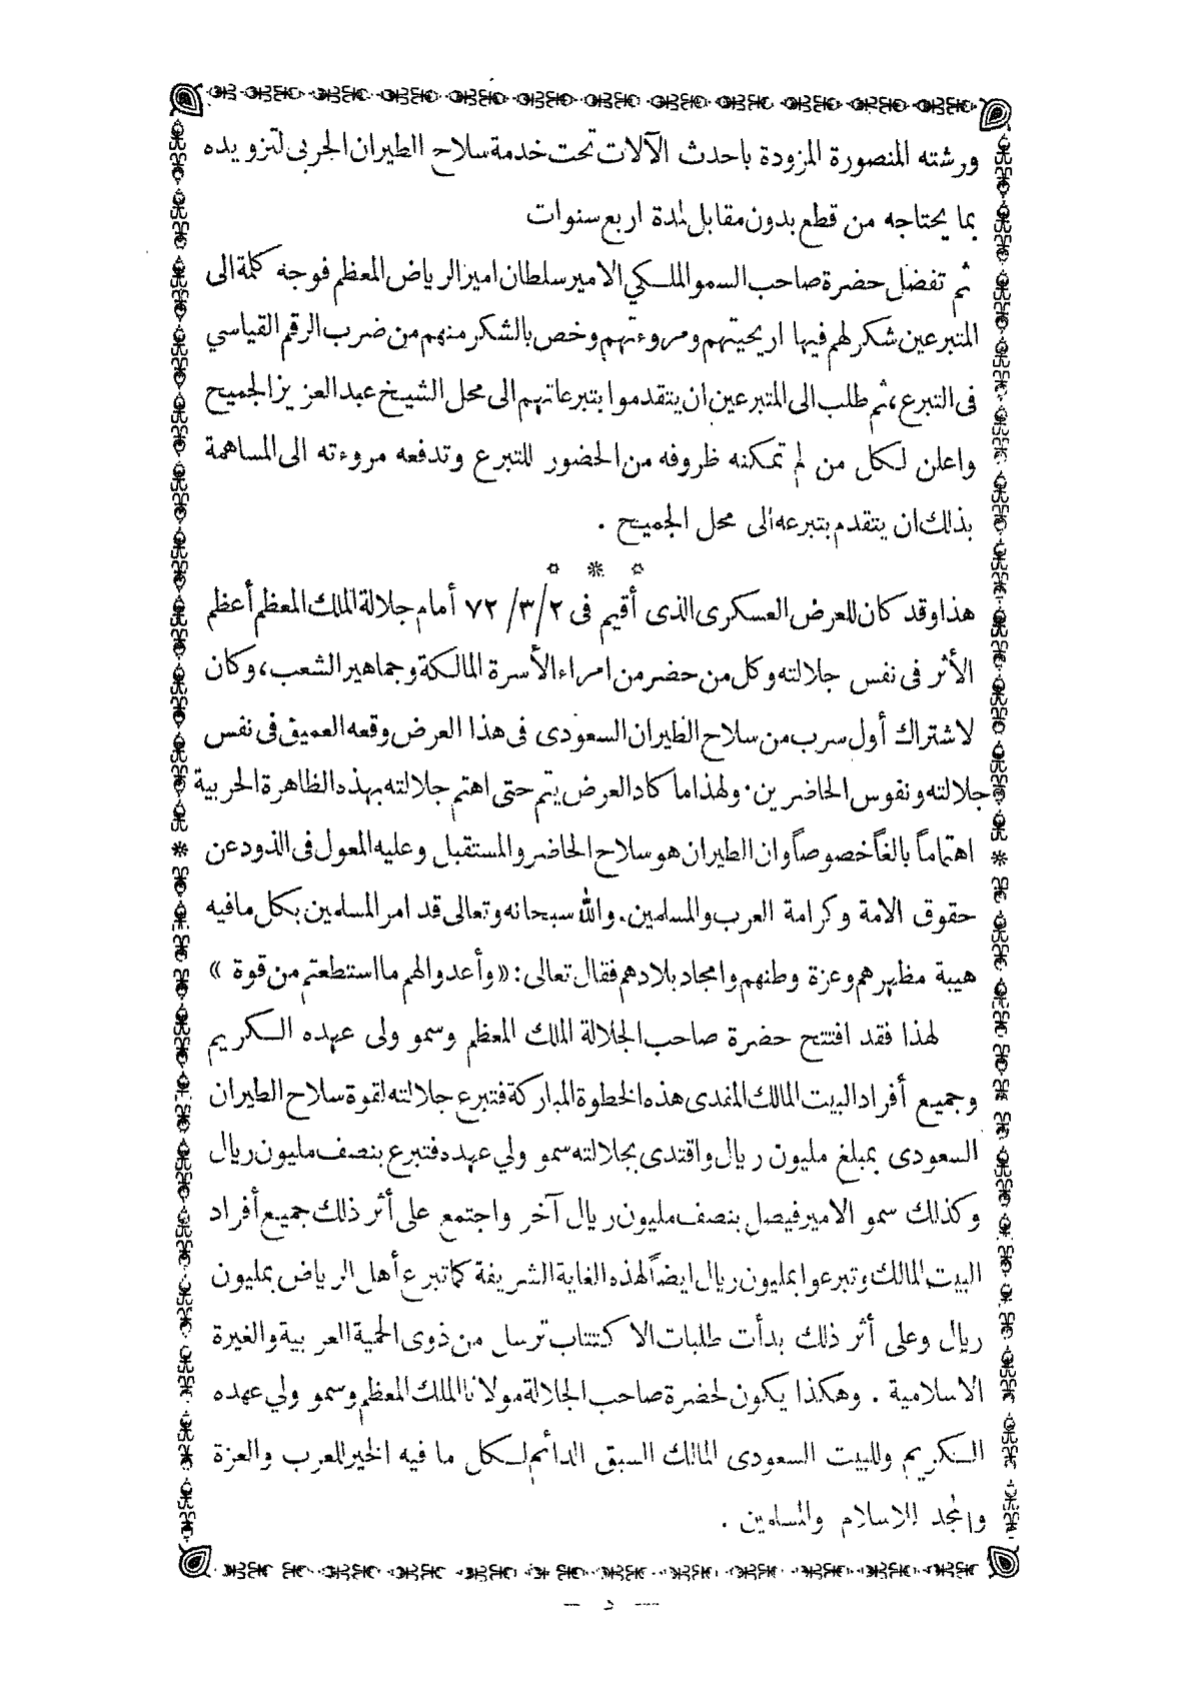 ورشته المنصورة المزودة باحدث الآلات تحت خدمة سلاح الطيران الحربى لتزويده
بما يحتاجه من قطع بدون مقابل لمدة اربع سنوات
ثم تفضل حضرة صاحب السمو الملكي الامير سلطان امير الرياض المعظم فوجه كلمة الى
المتبرعين شكر لهم فيها اريحيتهم ومروءتهم وخص بالشكر منهم من ضرب الرقم القياسي
فى التبرع، ثم طلب الى المتبرعين ان يتقدموا بتبرعاتهم الى محل الشيخ عبد العزيز الجميح
واعلن لكل من لم تمكنه ظروفه من الحضور للتبرع وتدفعه مروءته الى المساهمة
بذلك ان يتقدم بتبرعه الى محل الجميح .
☼ ※ ☼
هذا وقد كان للعرض العسكرى الذى أقيم فى ٢/٣/ ٧٢ أمام جلالة الملك المعظم أعظم
الأثر فى نفس جلالته وكل من حضر من امراء الأسرة المالكة وجماهير الشعب، وكان
لاشتراك أول سرب من سلاح الطيران السعودى فى هذا العرض وقعه العميق فى نفس
جلالته ونفوس الحاضرين. ولهذا ما كاد العرض يتم حتى اهتم جلالته بهذه الظاهرة الحربية
اهتماماً بالغاً خصوصاً وان الطيران هو سلاح الحاضر والمستقبل وعليه المعول فى الذود عن
حقوق الامة وكرامة العرب والمسلمين. والله سبحانه وتعالى قد امر المسلمين بكل ما فيه
هيبة مظهرهم وعزة وطنهم وامجاد بلادهم فقال تعالى: «وأعدوا لهم ما استطعتم من قوة»
لهذا فقد افتتح حضرة صاحب الجلالة الملك المعظم وسمو ولى عهده الكريم
وجميع أفراد البيت المالك المفدى هذه الخطوة المباركة فتبرع جلالته لقوة سلاح الطيران
السعودى بمبلغ مليون ريال واقتدى بجلالته سمو ولي عهده فتبرع بنصف مليون ريال
وكذلك سمو الامير فيصل بنصف مليون ريال آخر واجتمع على أثر ذلك جميع أفراد
البيت المالك وتبرعوا بمليون ريال ايضاً لهذه الغاية الشريفة كما تبرع أهل الرياض بمليون
ريال وعلى أثر ذلك بدأت طلبات الاكتتاب ترسل من ذوى الحمية العربية والغيرة
الاسلامية . وهكذا يكون لحضرة صاحب الجلالة مولانا الملك المعظم وسمو ولي عهده
الكريم وللبيت السعودى المالك السبق الدائم لكل ما فيه الخير للعرب والعزة
والمجد للاسلام والمسلمين .